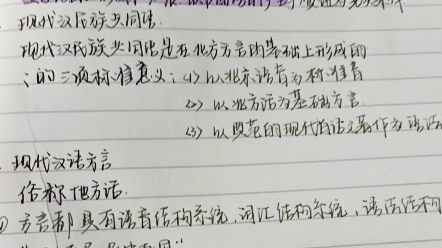 现代汉民族共同语.
现代汉民族共同语是在北方方言的基础上形成的
的三项标准意义: (1) 以北京语音为标准音
(2) 以北方话为基础方言.
(3) 以典范的现代白话文著作为语法
现代汉语方言
俗称地方话.
方言都具有语音结构系统, 词汇结构系统, 语法结构